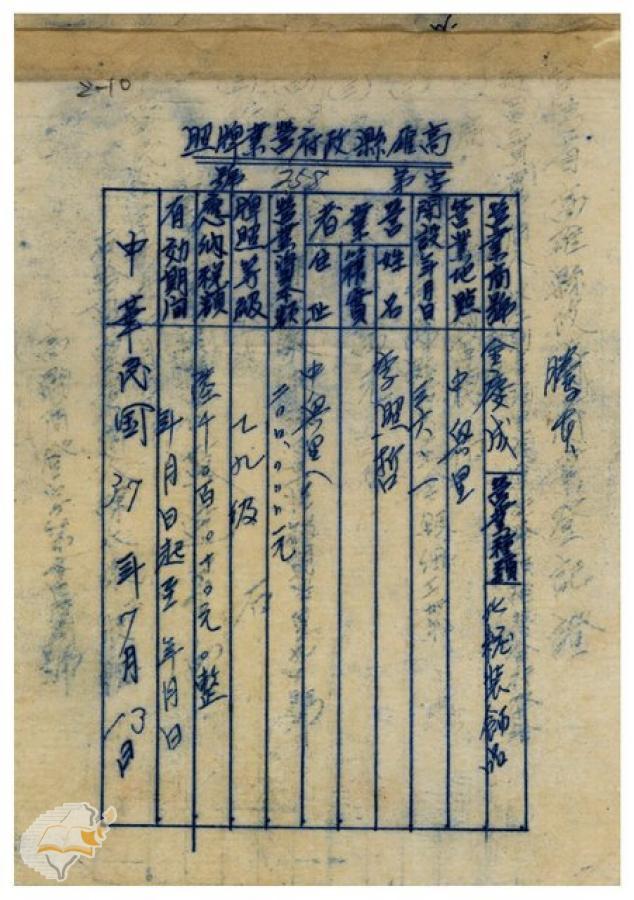 2-10
高雄縣政府營業牌照
字第258號
謄本
營業商號 金慶成 營業種類 化粧裝飾品
營業地點 中興里
開設年月日 三六、一、一
營業者
姓名 李照哲
籍貫
住址 中興里
營業資本額 二〇〇、〇〇〇元
牌照等級 乙九級
應納稅額 陸千〇百〇十〇元〇整
有効期间 年月日起至 年月日
中華民国37年7月13日